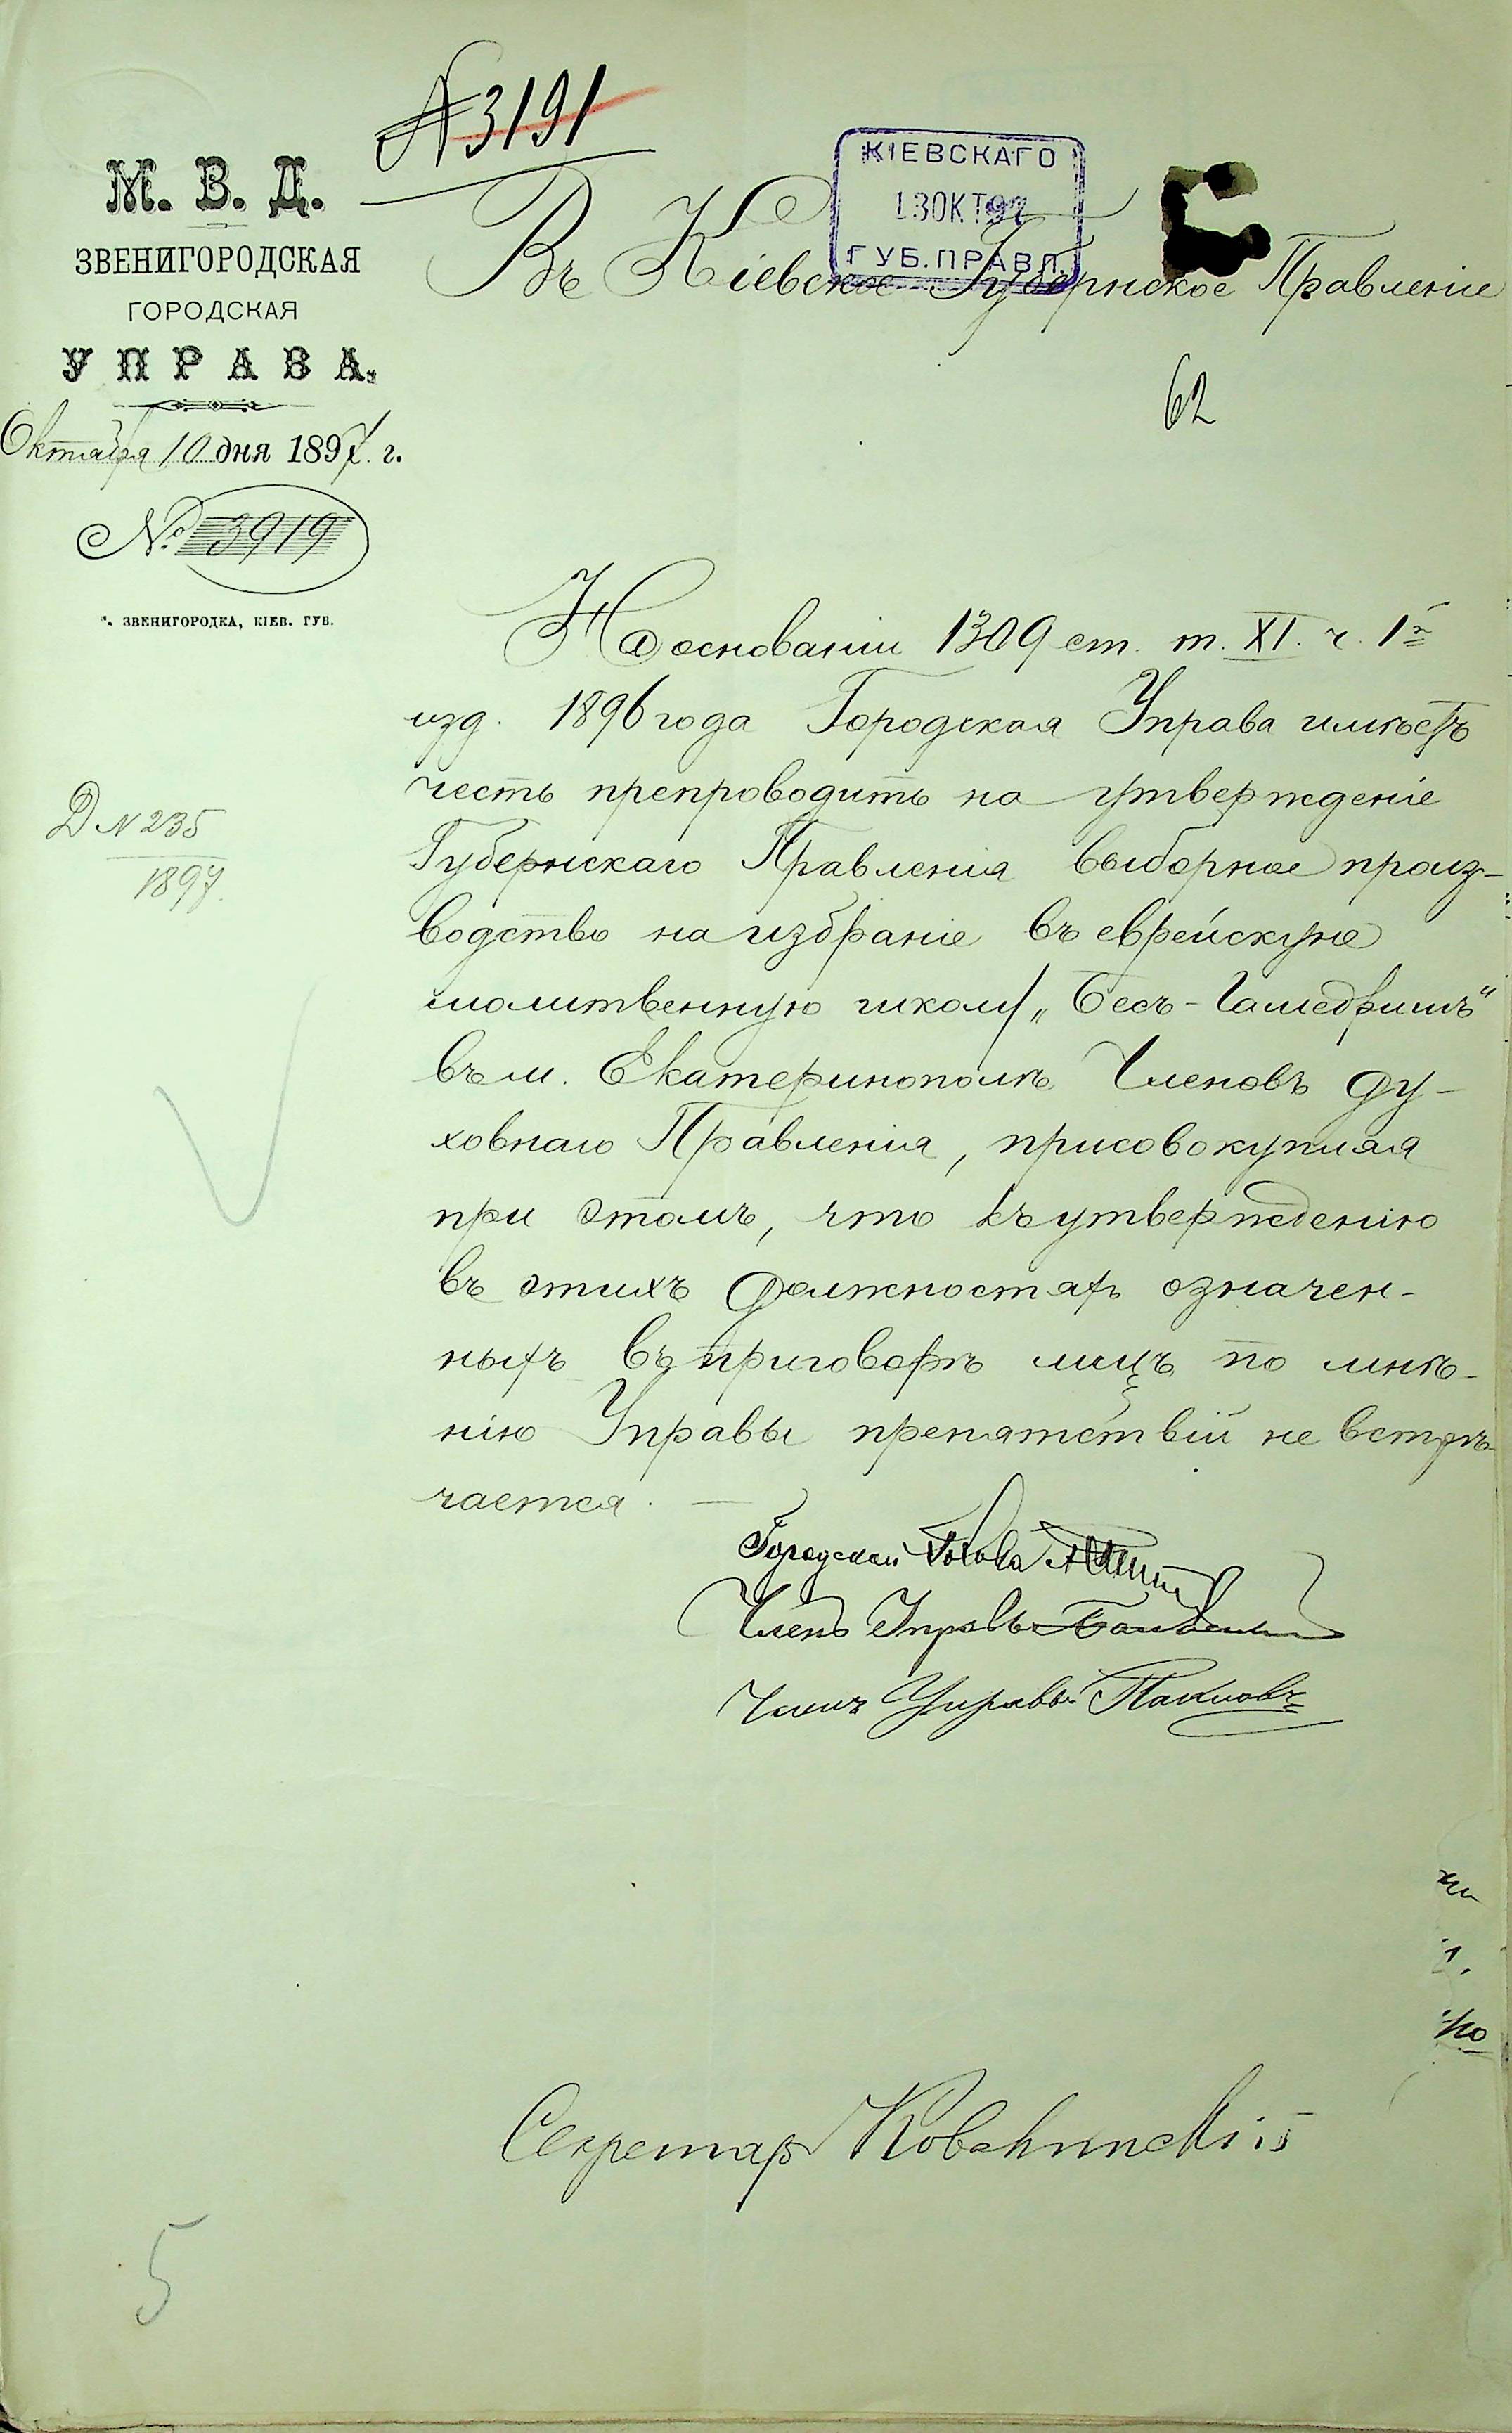 № 3191
М. В. Д.
ЗВЕНИГОРОДСКАЯ
ГОРОДСКАЯ
УПРАВА.
Октября 10 дня 1897 г.
№ 3919
г. ЗВЕНИГОРОДКА, КІЕВ. ГУБ.
КІЕВСКАГО
13 ОКТ 97
ГУБ. ПРАВЛ.
Въ Кіевское Губернское Правленіе
62
Д № 235
1897
На основаніи 1309 ст. т. XI. ч. 1й
изд. 1896 года Городская Управа имѣетъ
честь препроводить на утвержденіе
Губернскаго Правленія выборное произ-
водство на избраніе въ еврейскую
молитвенную школу „Бесъ-Гамедришъ“
въ м. Екатеринополѣ Членовъ ду-
ховнаго Правленія, присовокупляя
при этомъ, что къ утвержденію
въ этихъ должностяхъ означен-
ныхъ въ приговорѣ лицъ по мнѣ-
нію Управы препятствій не встрѣ-
чается. —
Городской Голова
Членъ Управы
Членъ Управы
Секретарь
5